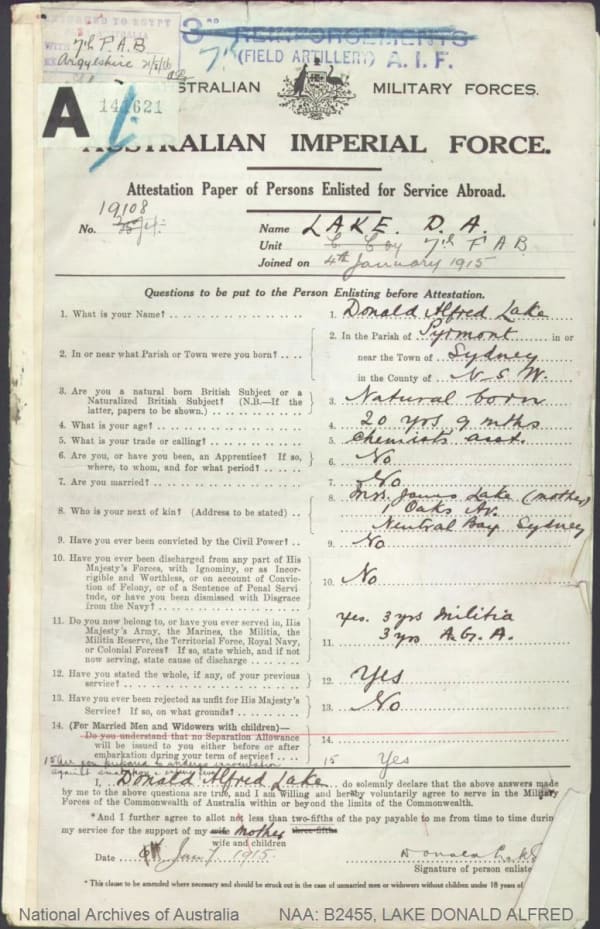 7th F.A.B
Argyllshire
3RD REINFORCEMENTS
7th (FIELD ARTILLERY) A. I. F.
A
141621
AUSTRALIAN MILITARY FORCES.
AUSTRALIAN IMPERIAL FORCE.
Attestation Paper of Persons Enlisted for Service Abroad.
19108
No.
Name LAKE. D. A.
Unit C Coy 7th F A B
Joined on 4th January 1915
Questions to be put to the Person Enlisting before Attestation.
1. What is your Name? 1. Donald Alfred Lake
2. In or near what Parish or Town were you born? 2. In the Parish of Pyrmont in or
near the Town of Sydney
in the County of N.S.W.
3. Are you a natural born British Subject or a
Naturalized British Subject? (N.B.—If the
latter, papers to be shown.) 3. Natural born
4. What is your age? 4. 20 yrs 9 mths
5. What is your trade or calling? 5. Chemists asst.
6. Are you, or have you been, an Apprentice? If so,
where, to whom, and for what period? 6. No
7. Are you married? 7. No
8. Who is your next of kin? (Address to be stated) 8. Mrs. Lake (mother)
1 Oaks Av.
Neutral Bay Sydney
9. Have you ever been convicted by the Civil Power? 9. No
10. Have you ever been discharged from any part of His
Majesty's Forces, with Ignominy, or as Incor-
rigible and Worthless, or on account of Convic-
tion of Felony, or of a Sentence of Penal Servi
tude, or have you been dismissed with Disgrace
from the Navy? 10. No
11. Do you now belong to, or have you ever served in, His
Majesty's Army, the Marines, the Militia, the
Militia Reserve, the Territorial Force, Royal Navy,
or Colonial Forces? If so, state which, and if not
now serving, state cause of discharge 11. Yes. 3 yrs Militia
3 yrs A.G.A.
12. Have you stated the whole, if any, of your previous
service? 12. Yes
13. Have you ever been rejected as unfit for His Majesty's
Service? If so, on what grounds? 13. No
14. (For Married Men and Widowers with children)—
Do you understand that no Separation Allowance
will be issued to you either before or after
embarkation during your term of service? 14.
15 Are you prepared to undergo inoculation
against 15 Yes
I, Donald Alfred Lake do solemnly declare that the above answers made
by me to the above questions are true, and I am willing and hereby voluntarily agree to serve in the Military
Forces of the Commonwealth of Australia within or beyond the limits of the Commonwealth.
*And I further agree to allot not less than two-fifths of the pay payable to me from time to time during
my service for the support of my wife mother three-fifths
wife and children
Date Jan 1915. Donald Lake
Signature of person enlisted
*This clause to be amended where necessary and should be struck out in the case of unmarried men or widowers without children under 18 years of
National Archives of Australia NAA: B2455, LAKE DONALD ALFRED